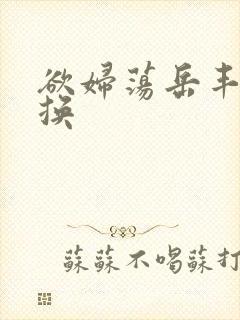 欲婦蕩岳丰
换
蘇蘇不喝蘇打